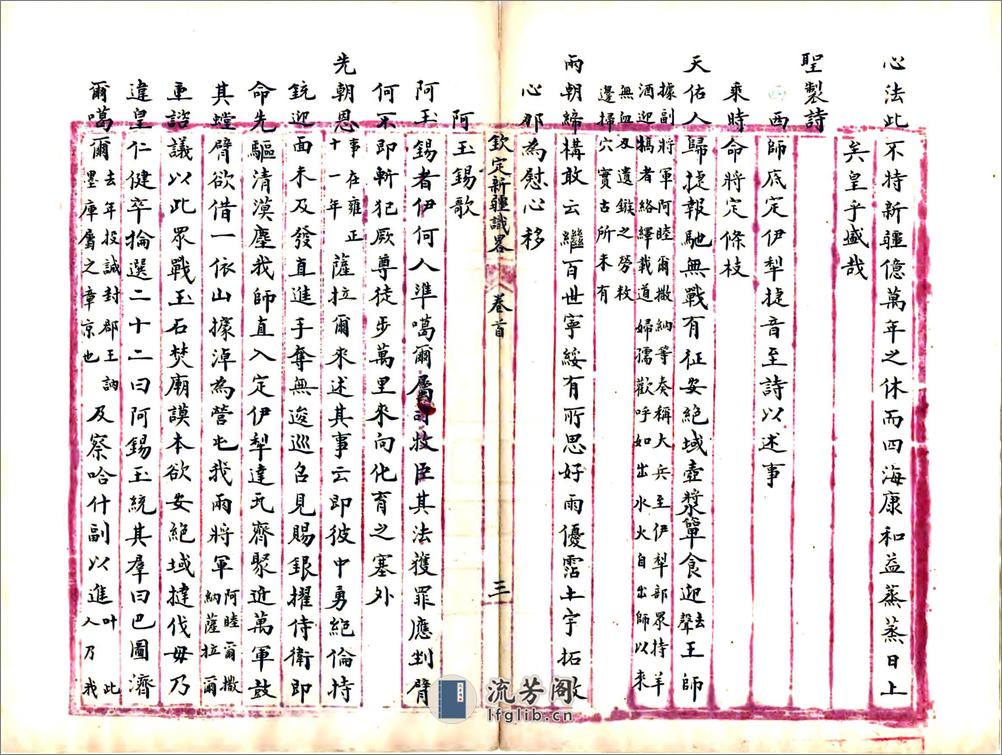 心法此不特新疆億萬年之休而四海康和益蒸蒸日上
矣皇乎盛哉
聖製詩
西師底定伊犁捷音至詩以述事
乘時命將定條枝
天佑人歸捷報馳無戰有征安絕域壺漿簞食迎去聲王師
據副將軍阿睦爾撒納等奏稱大兵至伊犁部眾持羊
酒迎犒者絡繹載道婦孺歡呼如出水火自出師以來
無血刃遺鏃之勞敉
邊掃穴實古所未有
兩朝締構敢云繼百世寧綏有所思好雨優霑土宇拓敬
心那為慰心移
阿玉錫歌
阿玉錫者伊何人準噶爾屬司牧臣其法獲罪應剉臂
何不即斬犯厥尊徒步萬里來向化育之塞外
先朝恩事在雍正十一年薩拉爾來述其事云即彼中勇絕倫持
銃迎面未及發直進手奪無逡巡召見賜銀擢侍衛即
命先驅清漠塵我師直入定伊犁達瓦齊聚近萬軍鼓
其螳臂欲借一依山據淖為營屯我兩將軍阿睦爾撒納薩拉爾
亟諮議以此眾戰玉石焚廟謨本欲安絕域撻伐毋乃
違皇仁健卒掄選二十二曰阿錫玉統其羣曰巴圖濟
爾噶爾去年投誠封郡王訥墨庫屬之章京也及察哈什副以進叶此人乃我
欽定新疆識畧
卷首
三
流芳阁
lfglib.cn